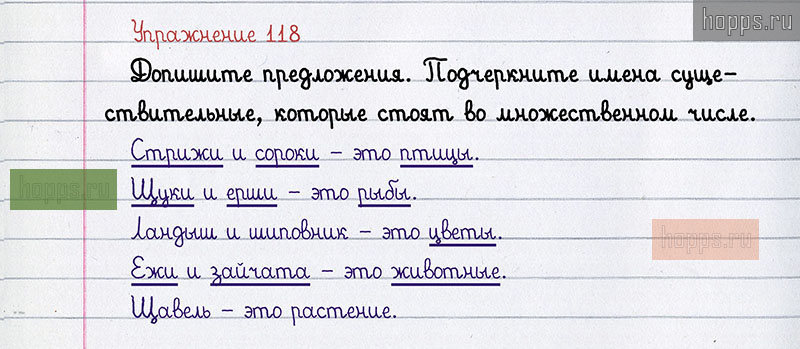 hopps.ru
Упражнение 118
Допишите предложения. Подчеркните имена суще-
ствительные, которые стоят во множественном числе.
Стрижи и сороки – это птицы.
hopps.ru
Щуки и ерши – это рыбы.
Ландыш и шиповник – это цветы.
hopps.ru
Ежи и зайчата – это животные.
Щавель – это растение.